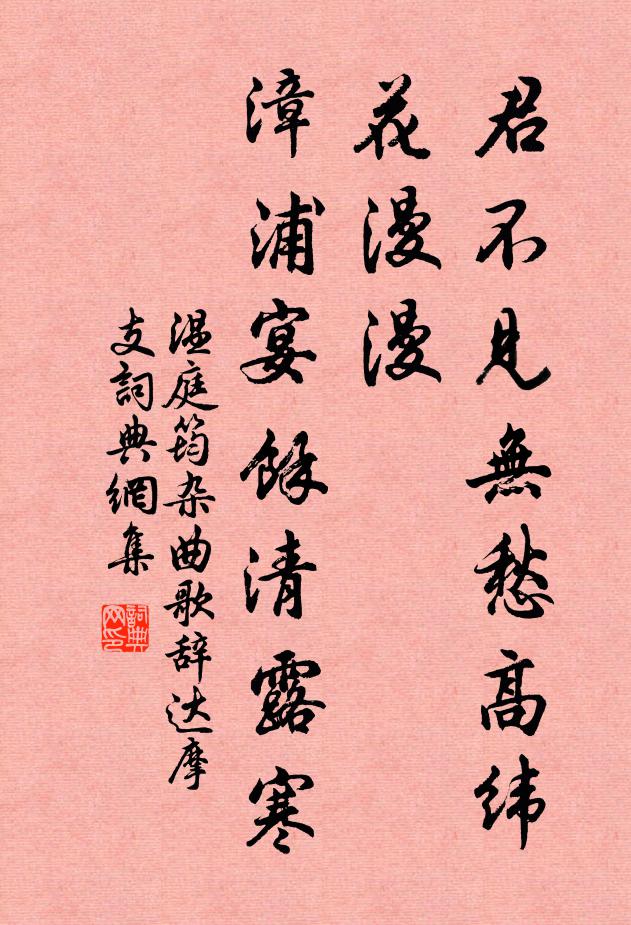 君不見無愁高緯
花漫漫
漳浦宴餘清露寒
温庭筠杂曲歌辞达摩
支詞典網集
詞典
网印